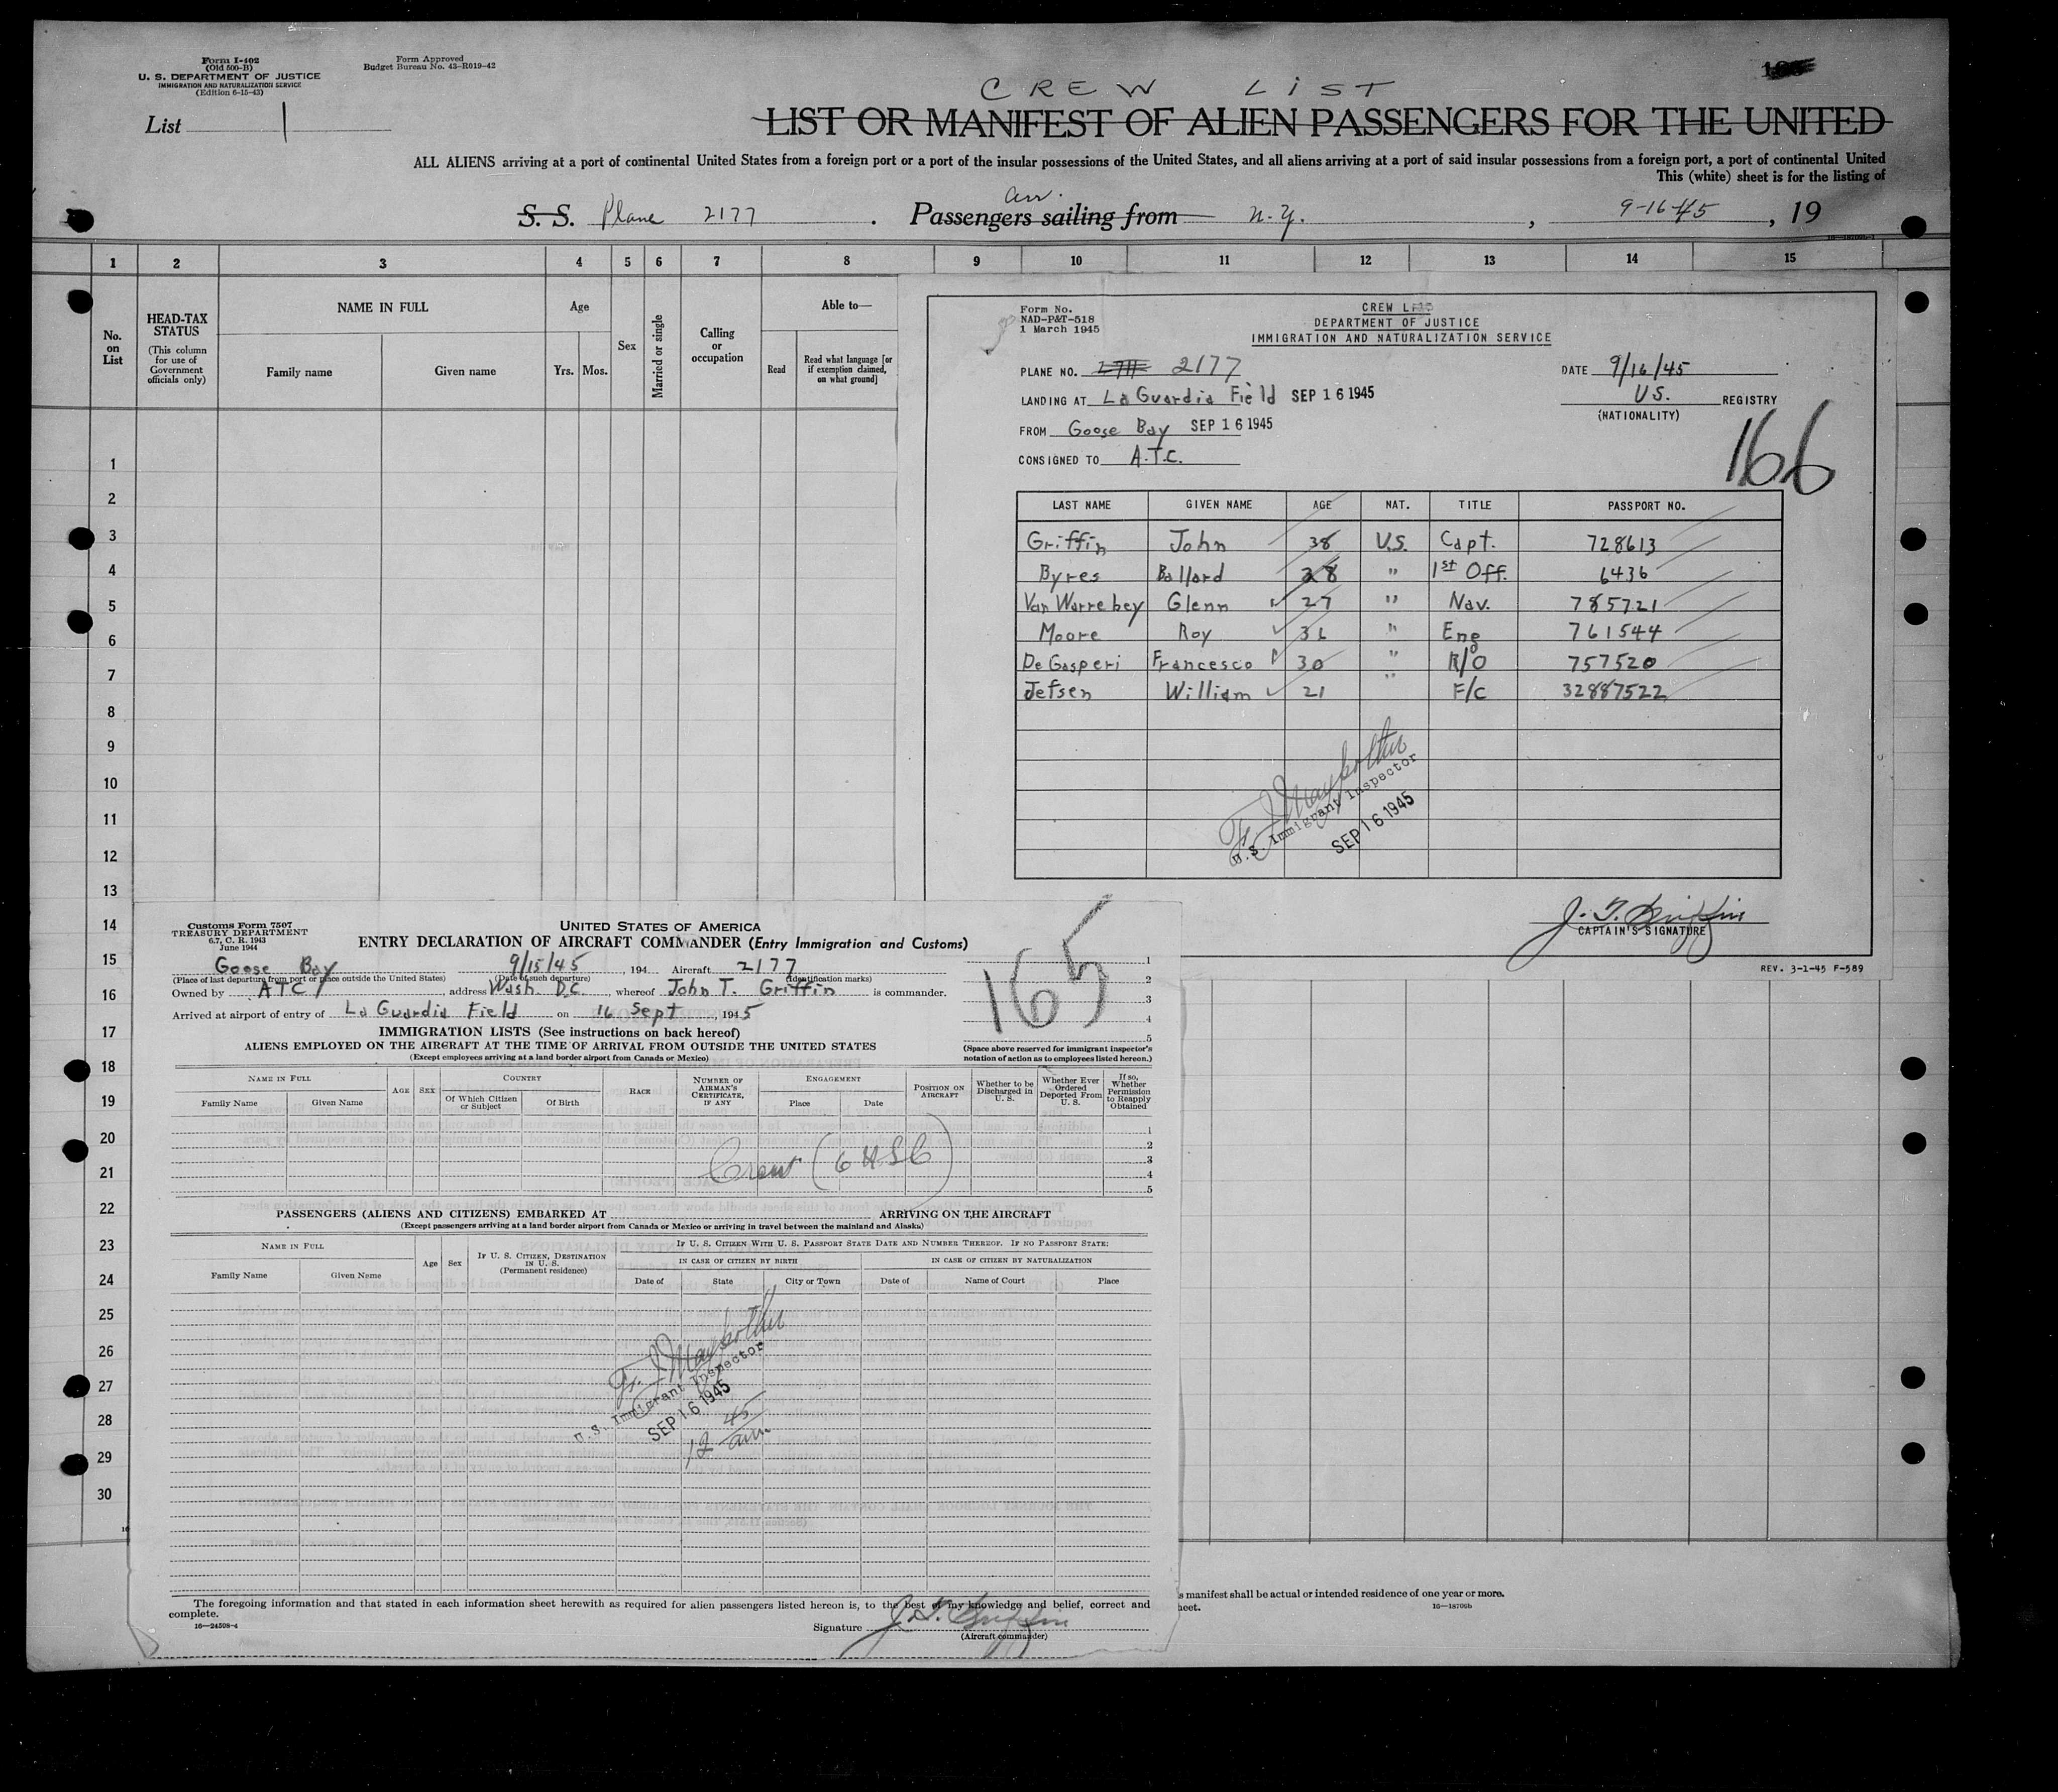 Form I-402
(Old 500-B)
U. S. DEPARTMENT OF JUSTICE
IMMIGRATION AND NATURALIZATION SERVICE
(Edition 6-15-43)
Form Approved
Budget Bureau No. 43-R019-42
List 1
CREW LIST
LIST OR MANIFEST OF ALIEN PASSENGERS FOR THE UNITED
ALL ALIENS arriving at a port of continental United States from a foreign port or a port of the insular possessions of the United States, and all aliens arriving at a port of said insular possessions from a foreign port, a port of continental United
This (white) sheet is for the listing of
arr.
S. S. Plane 2177 . Passengers sailing from N.Y. , 9-16-45 , 19
1 2 3 4 5 6 7 8 9 10 11 12 13 14 15
No. on List
HEAD-TAX STATUS
(This column for use of Government officials only)
NAME IN FULL
Family name
Given name
Age
Yrs. Mos.
Sex
Married or single
Calling or occupation
Able to—
Read
Read what language [or if exemption claimed, on what ground]
1
2
3
4
5
6
7
8
9
10
11
12
13
14
15
16
17
18
19
20
21
22
23
24
25
26
27
28
29
30
Form No.
NAD-P&T-518
1 March 1945
CREW LIST
DEPARTMENT OF JUSTICE
IMMIGRATION AND NATURALIZATION SERVICE
PLANE NO. 2177
DATE 9/16/45
LANDING AT La Guardia Field SEP 16 1945
U.S. REGISTRY
(NATIONALITY)
FROM Goose Bay SEP 16 1945
CONSIGNED TO A.T.C.
166
LAST NAME GIVEN NAME AGE NAT. TITLE PASSPORT NO.
Griffin John 38 U.S. Capt. 728613
Byres Ballard 28 " 1st Off. 6436
Van Warrebey Glenn 27 " Nav. 785721
Moore Roy 31 " Eng 761544
De Gasperi Francesco 30 " R/O 757520
Jefsen William 21 " F/C 32887522
U.S. Immigrant Inspector
SEP 16 1945
J. T. Griffin
CAPTAIN'S SIGNATURE
REV. 3-1-45 F-589
Customs Form 7507
TREASURY DEPARTMENT
6.7, C. R. 1943
June 1944
UNITED STATES OF AMERICA
ENTRY DECLARATION OF AIRCRAFT COMMANDER (Entry Immigration and Customs)
165
Goose Bay 9/15/45 , 194 Aircraft 2177
(Place of last departure from port or place outside the United States) (Date of such departure) (Identification marks)
Owned by ATC , address Wash. D.C. , whereof John T. Griffin is commander.
Arrived at airport of entry of La Guardia Field on 16 Sept , 1945
1
2
3
4
5
(Space above reserved for immigrant inspector's notation of action as to employees listed hereon.)
IMMIGRATION LISTS (See instructions on back hereof)
ALIENS EMPLOYED ON THE AIRCRAFT AT THE TIME OF ARRIVAL FROM OUTSIDE THE UNITED STATES
(Except employees arriving at a land border airport from Canada or Mexico)
NAME IN FULL
Family Name
Given Name
AGE
SEX
COUNTRY
Of Which Citizen or Subject
Of Birth
RACE
NUMBER OF AIRMAN'S CERTIFICATE, IF ANY
ENGAGEMENT
Place
Date
POSITION ON AIRCRAFT
Whether to be Discharged in U. S.
Whether Ever Ordered Deported From U. S.
If so, Whether Permission to Reapply Obtained
1
2
3
4
5
Crew (6 USC)
PASSENGERS (ALIENS AND CITIZENS) EMBARKED AT ARRIVING ON THE AIRCRAFT
(Except passengers arriving at a land border airport from Canada or Mexico or arriving in travel between the mainland and Alaska)
NAME IN FULL
Family Name
Given Name
Age
Sex
IF U. S. CITIZEN, DESTINATION IN U. S.
(Permanent residence)
IF U. S. CITIZEN WITH U. S. PASSPORT STATE DATE AND NUMBER THEREOF. IF NO PASSPORT STATE:
IN CASE OF CITIZEN BY BIRTH
Date of
State
City or Town
IN CASE OF CITIZEN BY NATURALIZATION
Date of
Name of Court
Place
U.S. Immigrant Inspector
SEP 16 1945
12 45 am.
The foregoing information and that stated in each information sheet herewith as required for alien passengers listed hereon is, to the best of my knowledge and belief, correct and
complete.
16—24508-4
Signature J. T. Griffin
(Aircraft commander)
s manifest shall be actual or intended residence of one year or more.
heet.
16—18706b